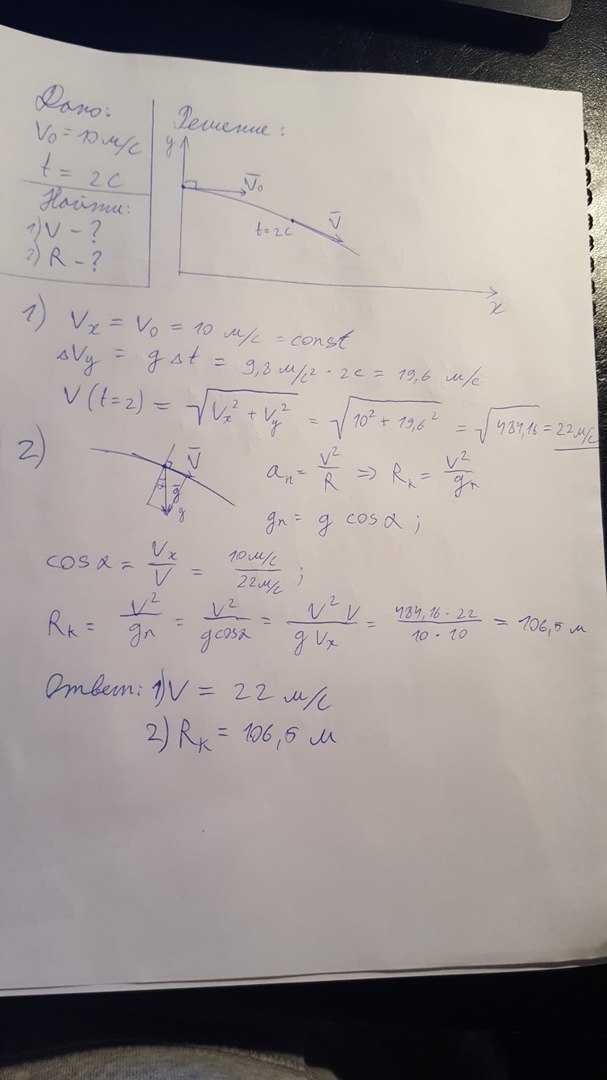 Дано:
V₀ = 10 м/с
t = 2 с
Найти:
1) V - ?
2) R - ?
Решение:
y
V̄₀
t=2c
V̄
x
1) Vₓ = V₀ = 10 м/с = const
ΔVy = g Δt = 9,8 м/с² · 2с = 19,6 м/с
V(t=2) = √(Vₓ² + Vy²) = √(10² + 19,6²) = √484,16 = 22 м/с
2)
V̄
α
g̅
g
aₙ = V²/R => Rₖ = V²/gₙ
gₙ = g cos α ;
cos α = Vₓ/V = 10 м/с / 22 м/с ;
Rₖ = V²/gₙ = V²/g cos α = V² V/g Vₓ = 484,16 · 22/10 · 10 = 106,5 м
Ответ: 1) V = 22 м/с
2) Rₖ = 106,5 м